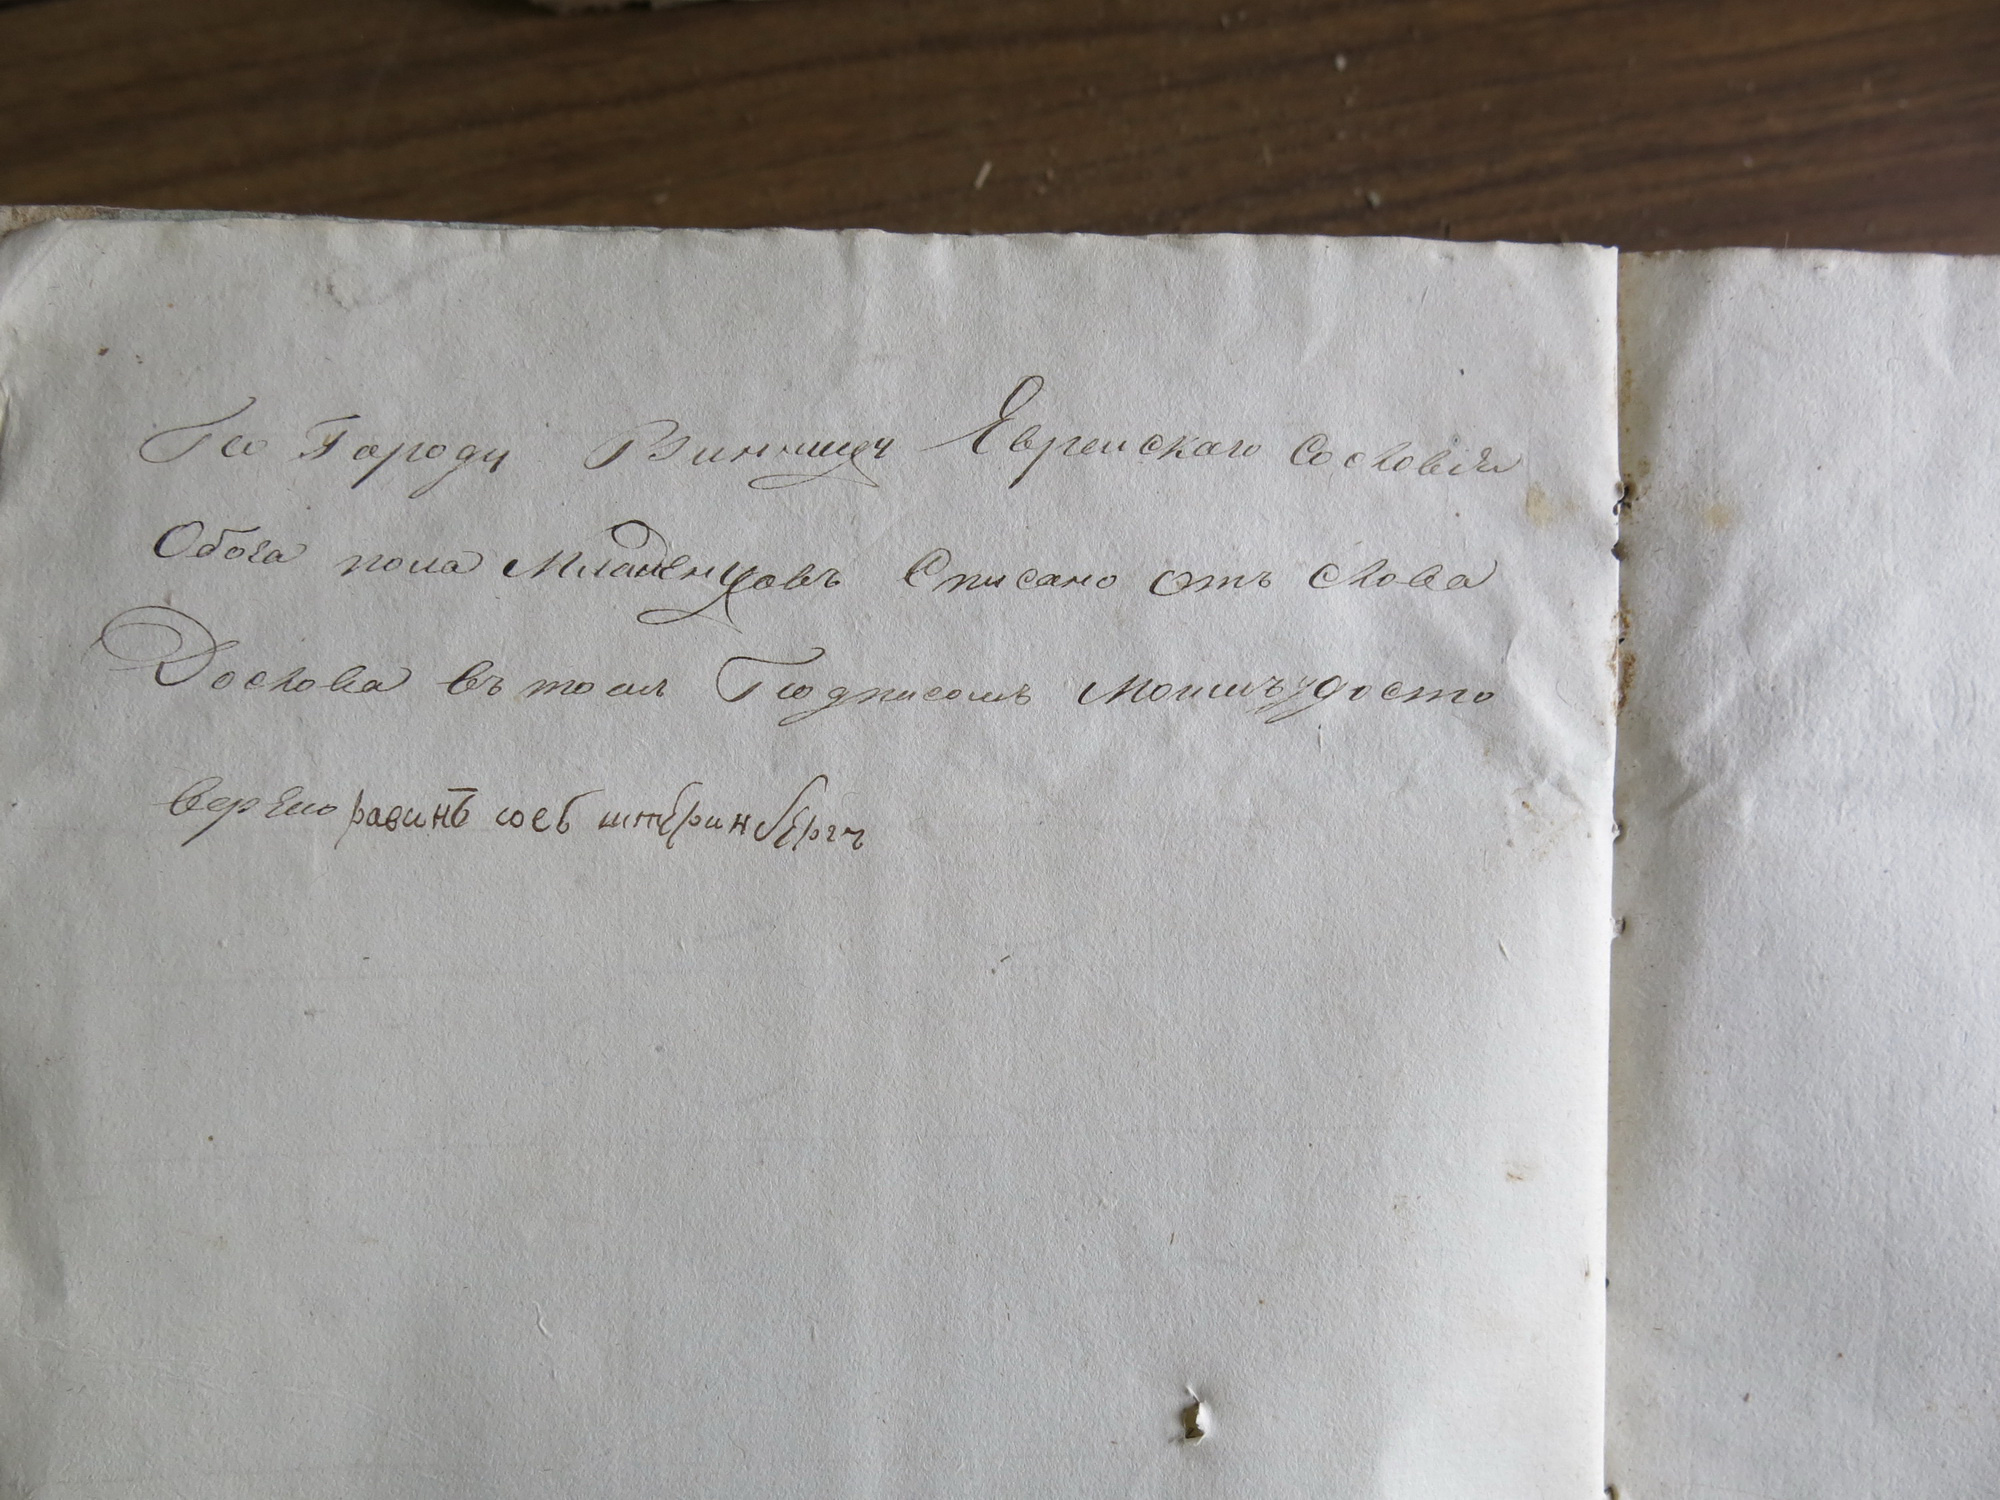 По Городу Винницы Евреискаго Сословія
Обога пола Младенцовъ Списано отъ слова
Дослова въ томъ Подписомъ Моимъ удосто
веряю равинъ иосб штеринбергъ